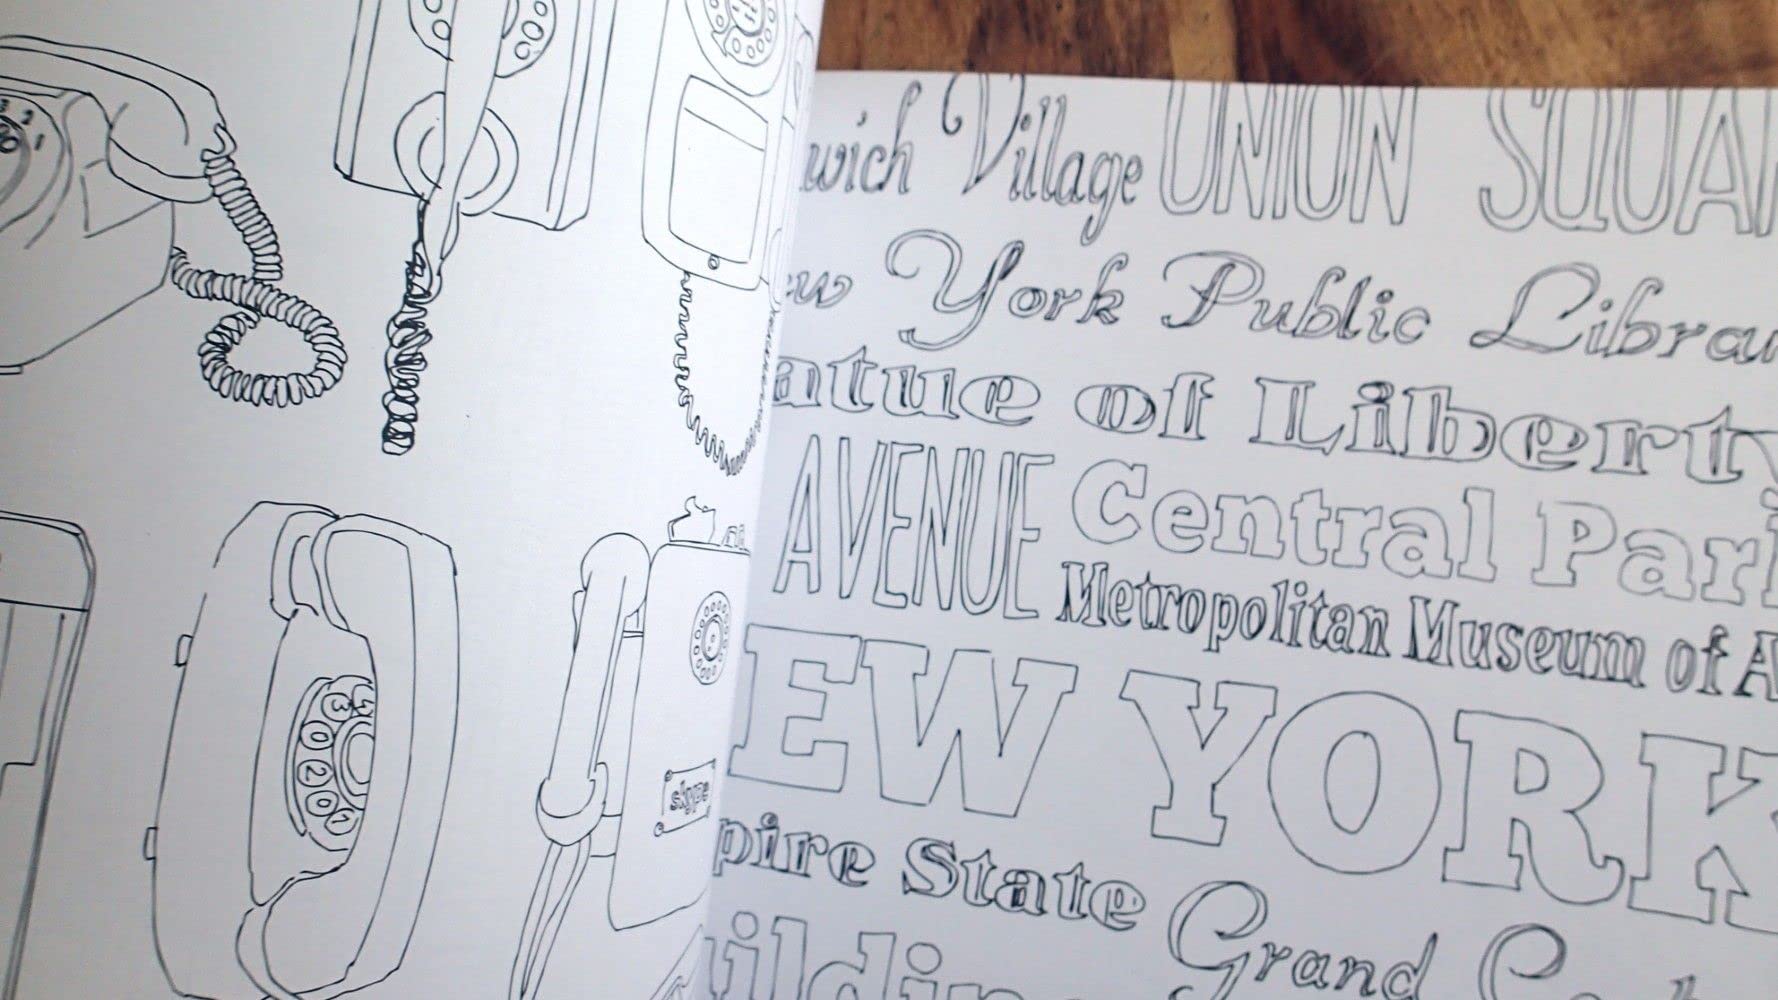 3 2 1
3
0
2
0
1
skype
wich Village UNION SQUAR
ew York Public Librar
atue of Liberty
AVENUE Central Park
Metropolitan Museum of A
EW YORK
pire State
Grand Ce
uilding